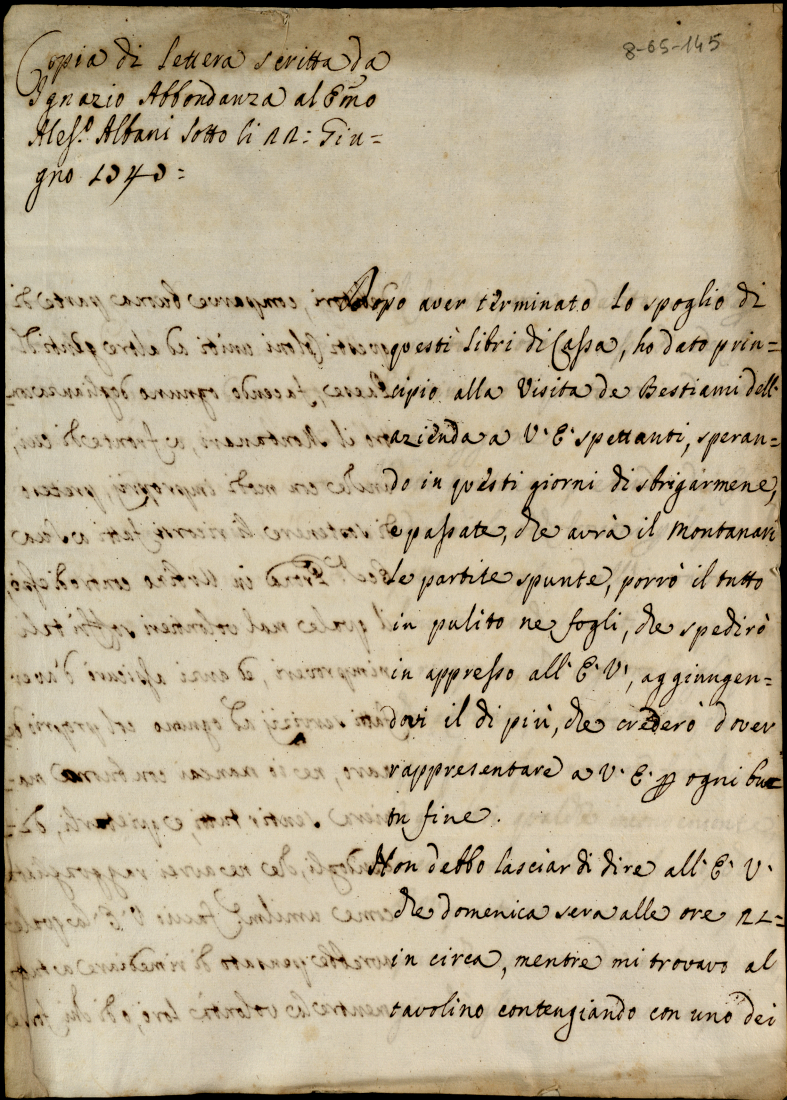 8-65-145
Copia di Lettera scritta da
Ignazio Abbondanza al Emo
Aless.o Albani sotto li 22: Giu=
gno 1743=
Dopo aver terminato lo spoglio di
questi Libri di Cassa, ho dato prin=
cipio alla Visita de Bestiami dell'
azienda a V. E. spettanti, speran=
do in questi giorni di sbrigarmene,
e passate, che avrà il Montanari
le partite spunte, porrò il tutto
in pulito ne fogli, che spedirò
in appresso all' E. V., aggiungen=
dovi il di più, che crederò dover
rappresentare a V. E. ogni buo
tn fine.
Non debbo lasciar di dire all' E. V.
che domenica sera alle ore 21=
in circa, mentre mi trovavo al
tavolino conteggiando con uno dei